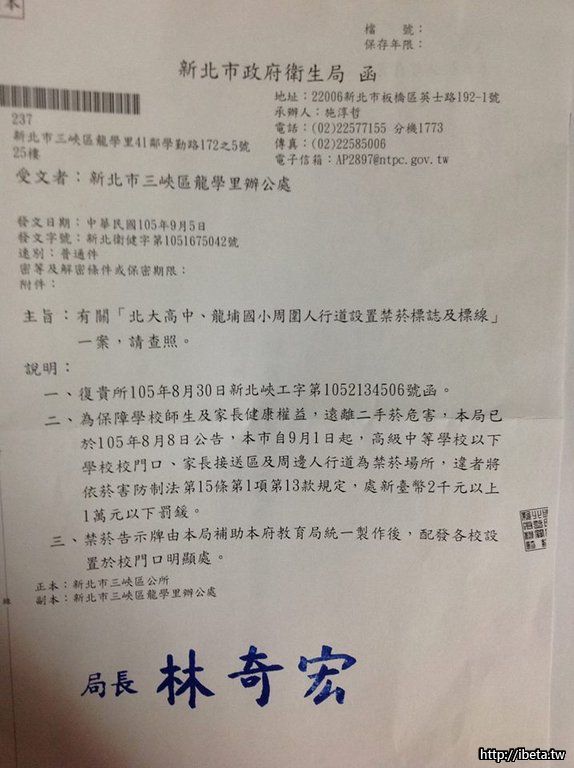 本
檔　　號：
保存年限：
新北市政府衛生局 函
地址：22006新北市板橋區英士路192-1號
承辦人：施淳哲
電話：(02)22577155 分機1773
傳真：(02)22585006
電子信箱：AP2897@ntpc.gov.tw
237
新北市三峽區龍學里41鄰學勤路172之5號
25樓
受文者：新北市三峽區龍學里辦公處
發文日期：中華民國105年9月5日
發文字號：新北衛健字第1051675042號
速別：普通件
密等及解密條件或保密期限：
附件：
主旨：有關「北大高中、龍埔國小周圍人行道設置禁菸標誌及標線」
一案，請查照。
說明：
一、復貴所105年8月30日新北峽工字第1052134506號函。
二、為保障學校師生及家長健康權益，遠離二手菸危害，本局已
於105年8月8日公告，本市自9月1日起，高級中等學校以下
學校校門口、家長接送區及周邊人行道為禁菸場所，違者將
依菸害防制法第15條第1項第13款規定，處新臺幣2千元以上
1萬元以下罰鍰。
三、禁菸告示牌由本局補助本府教育局統一製作後，配發各校設
置於校門口明顯處。
正本：新北市三峽區公所
副本：新北市三峽區龍學里辦公處
線
局長 林奇宏
http://ibeta.tw